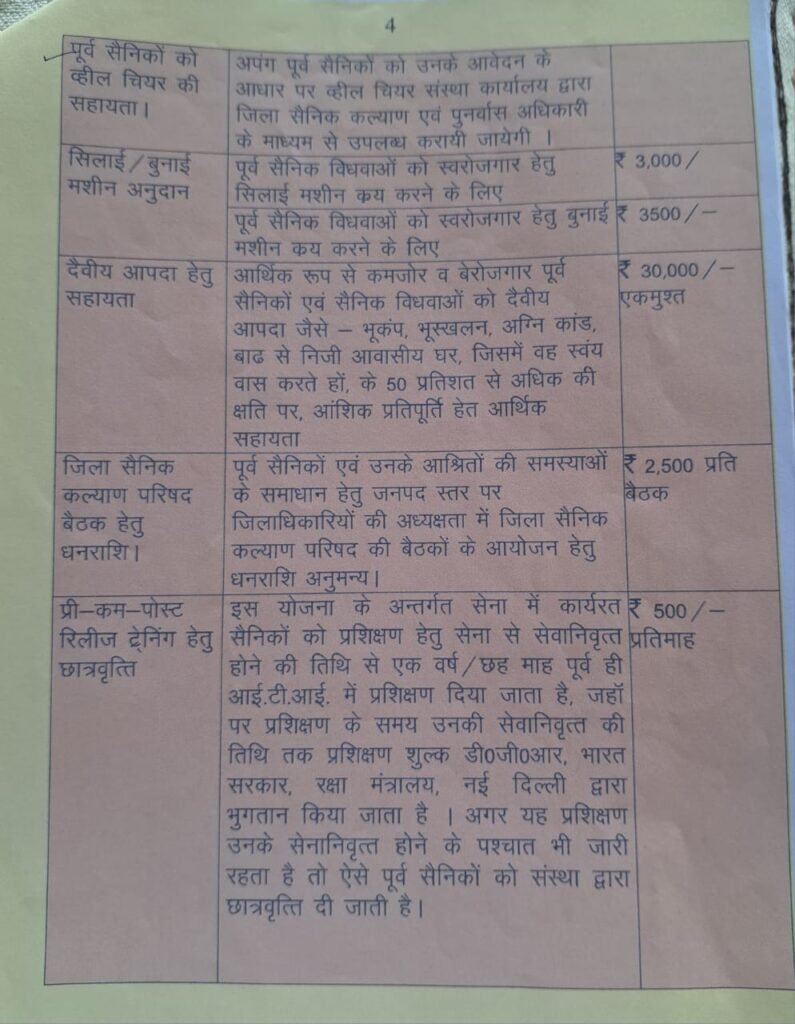 4
पूर्व सैनिकों को
व्हील चियर की
सहायता।
अपंग पूर्व सैनिकों को उनके आवेदन के
आधार पर व्हील चियर संस्था कार्यालय द्वारा
जिला सैनिक कल्याण एवं पुनर्वास अधिकारी
के माध्यम से उपलब्ध करायी जायेगी ।
सिलाई/बुनाई
मशीन अनुदान
पूर्व सैनिक विधवाओं को स्वरोजगार हेतु
सिलाई मशीन क्रय करने के लिए
₹ 3,000/
पूर्व सैनिक विधवाओं को स्वरोजगार हेतु बुनाई
मशीन क्रय करने के लिए
₹ 3500/–
दैवीय आपदा हेतु
सहायता
आर्थिक रूप से कमजोर व बेरोजगार पूर्व
सैनिकों एवं सैनिक विधवाओं को दैवीय
आपदा जैसे – भूकंप, भूस्खलन, अग्नि कांड,
बाढ से निजी आवासीय घर, जिसमें वह स्वंय
वास करते हों, के 50 प्रतिशत से अधिक की
क्षति पर, आंशिक प्रतिपूर्ति हेत आर्थिक
सहायता
₹ 30,000/–
एकमुश्त
जिला सैनिक
कल्याण परिषद
बैठक हेतु
धनराशि।
पूर्व सैनिकों एवं उनके आश्रितों की समस्याओं
के समाधान हेतु जनपद स्तर पर
जिलाधिकारियों की अध्यक्षता में जिला सैनिक
कल्याण परिषद की बैठकों के आयोजन हेतु
धनराशि अनुमन्य।
₹ 2,500 प्रति
बैठक
प्री–कम–पोस्ट
रिलीज ट्रेनिंग हेतु
छात्रवृत्ति
इस योजना के अन्तर्गत सेना में कार्यरत
सैनिकों को प्रशिक्षण हेतु सेना से सेवानिवृत्त
होने की तिथि से एक वर्ष/छह माह पूर्व ही
आई.टी.आई. में प्रशिक्षण दिया जाता है, जहॉ
पर प्रशिक्षण के समय उनकी सेवानिवृत्त की
तिथि तक प्रशिक्षण शुल्क डी0जी0आर, भारत
सरकार, रक्षा मंत्रालय, नई दिल्ली द्वारा
भुगतान किया जाता है । अगर यह प्रशिक्षण
उनके सेनानिवृत्त होने के पश्चात भी जारी
रहता है तो ऐसे पूर्व सैनिकों को संस्था द्वारा
छात्रवृत्ति दी जाती है।
₹ 500/–
प्रतिमाह